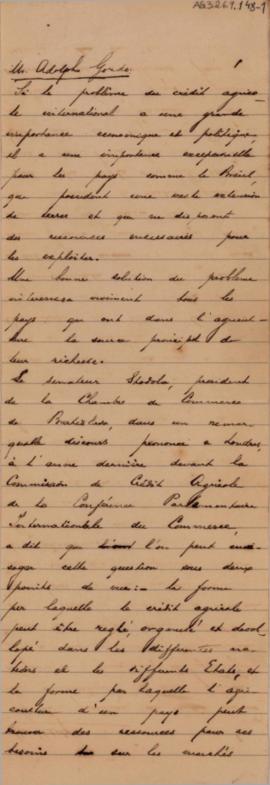 AG3269.148-1
Mr. Adolpho Gordo.
Si le problème du crédit agrico-
le international a une grande
importance economique et politique,
il a une importance exceptionnelle
pour les pays comme le Brésil,
que possedent une vaste extension
de terres et que ne disposent
des ressources necessaires pour
les exploiter.
Une bonne solution du probleme
interessera vivement tous les
pays que ont dans l'agricul-
ture la source principal de
leur richesse.
Le senateur Stodola, president
de la Chambre de Commerce
de Bratislava, dans un remar-
quable discours prononcé a Londres,
à l'anné dernière devant la
Commission de Crédit Agricole
de la Conférence Parlementaire
Internationale du Commerce,
a dit que l'on peut envi-
sager cette question sous deux
points de vue: la forme
par laquelle le crédit agricole
peut être reglé, organisé et devel-
lopé dans les differentes ma-
tières et les differents Etats, et
la forme par laquelle l'agri-
culture d'un pays peut
trouver des ressources pour ses
besoins sur les marchés